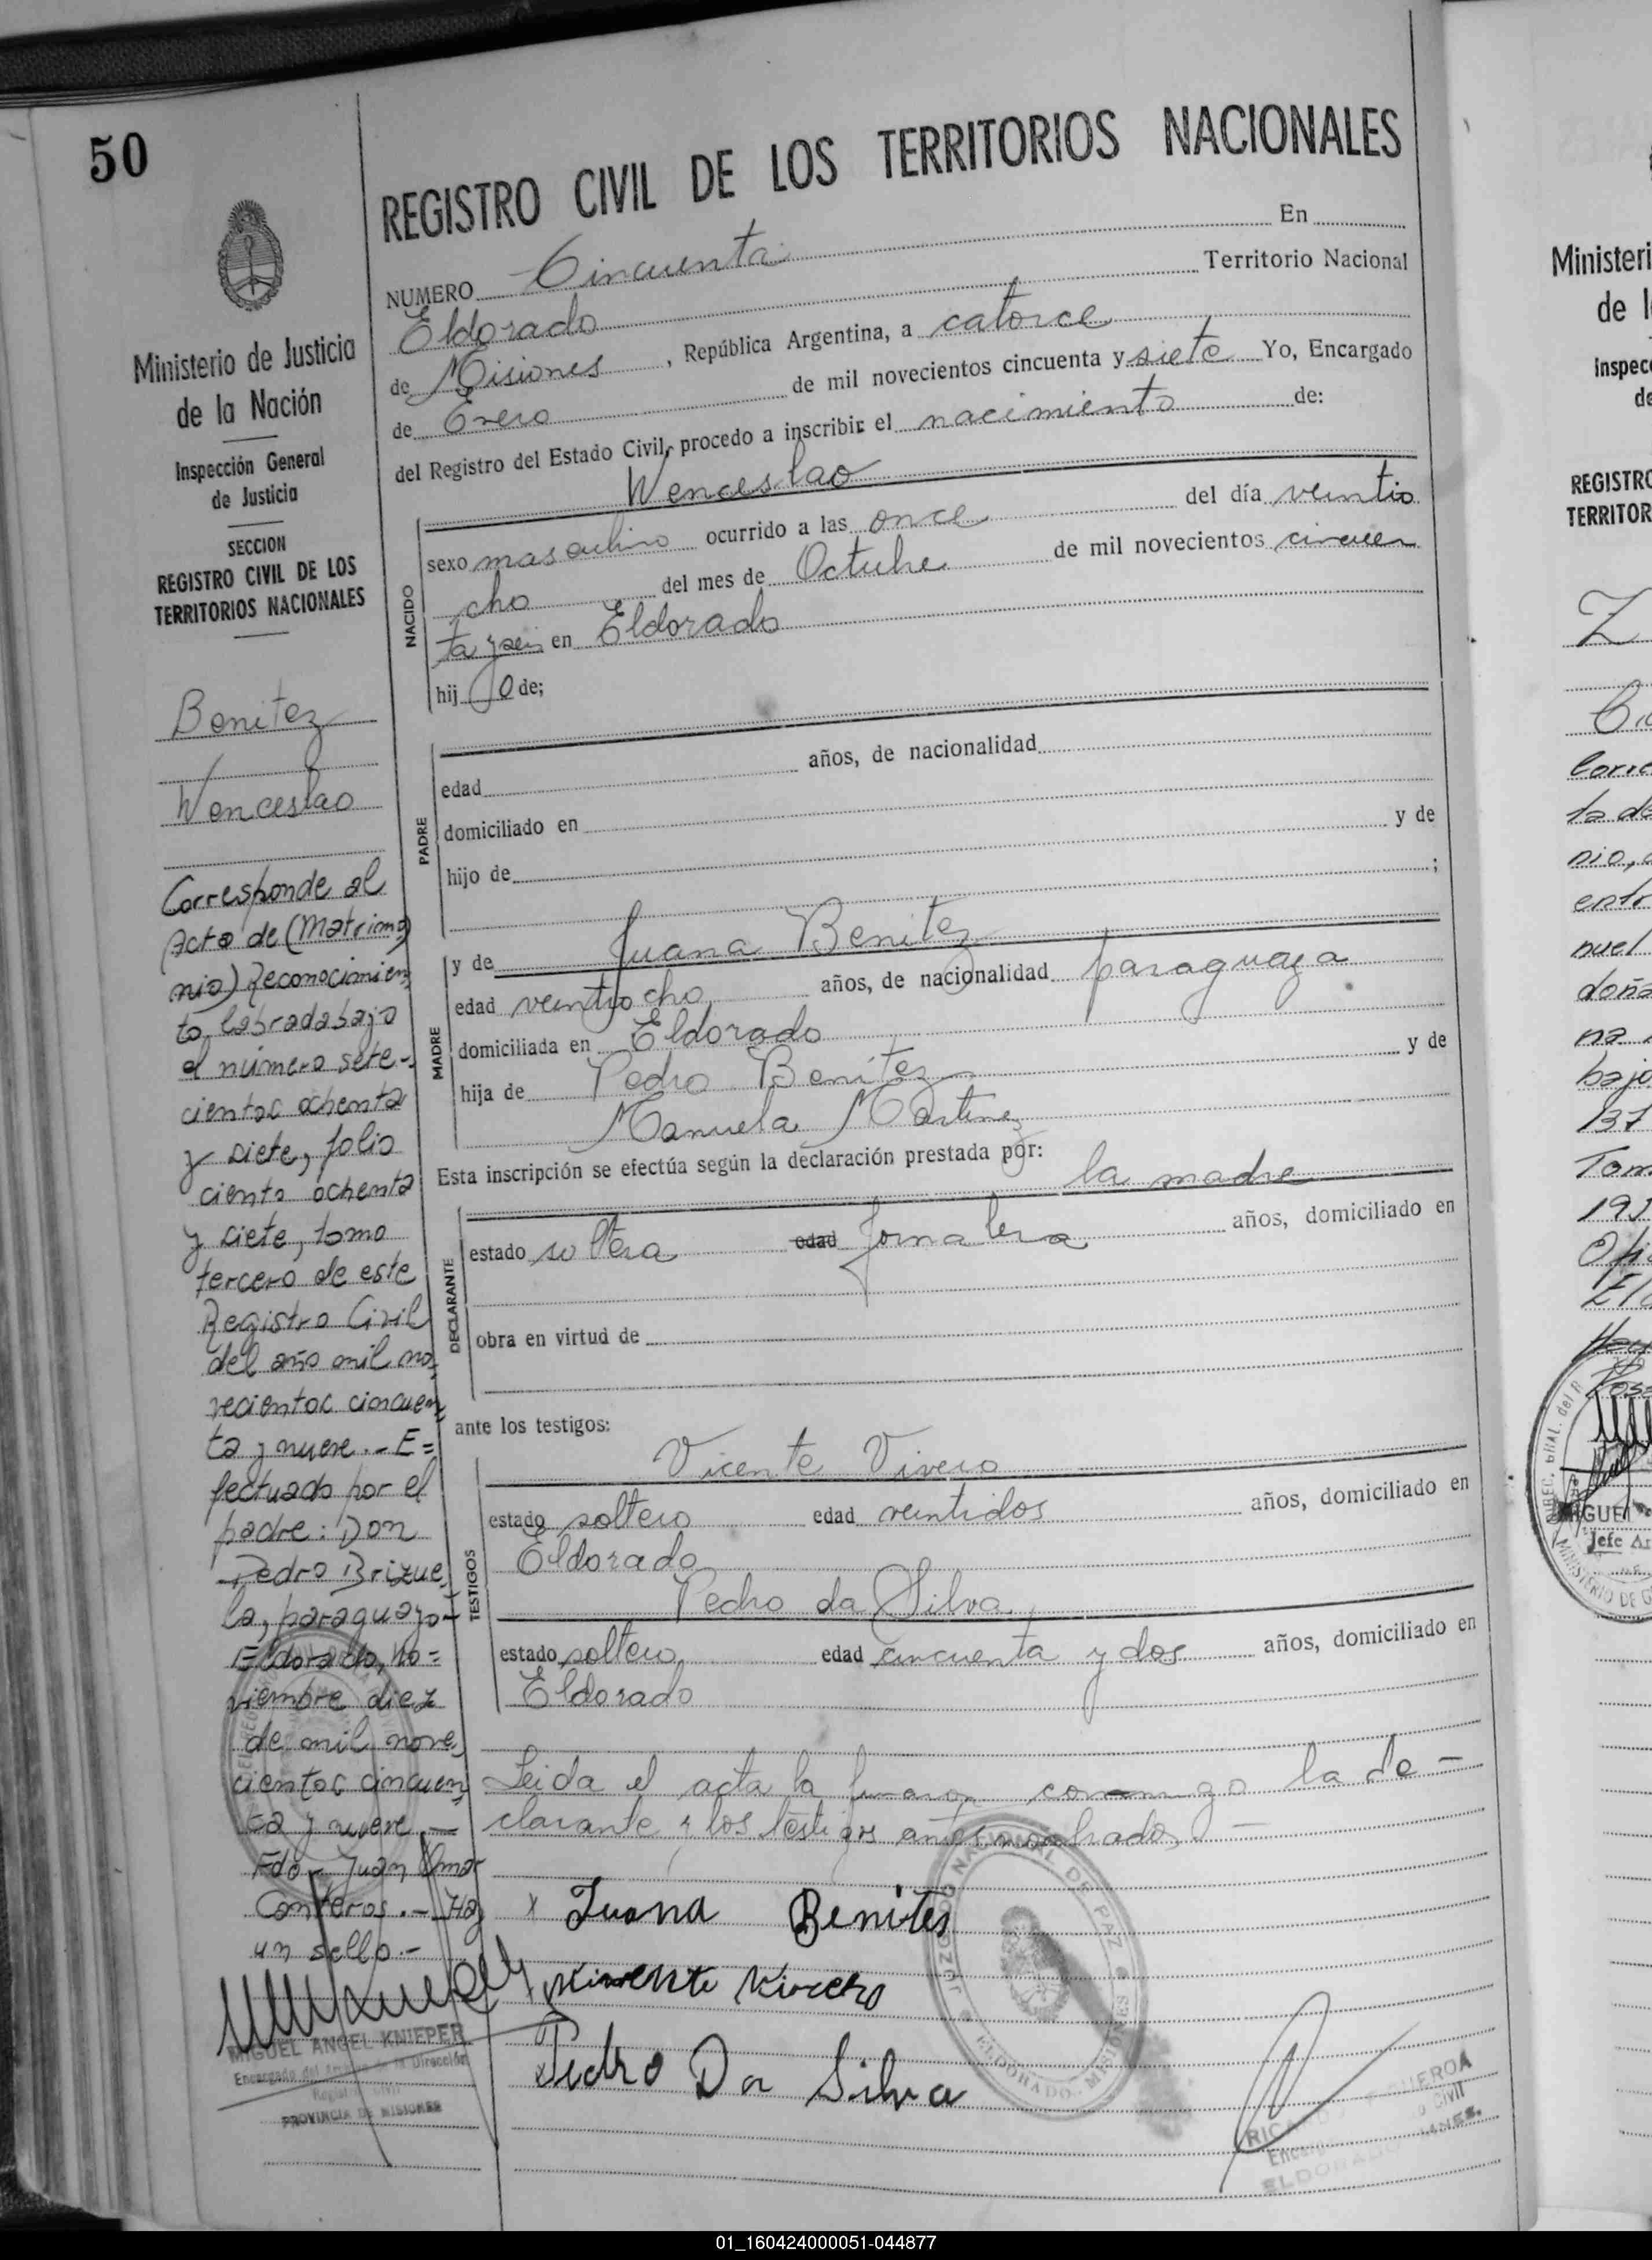 50
Ministerio de Justicia
de la Nación
Inspección General
de Justicia
SECCION
REGISTRO CIVIL DE LOS
TERRITORIOS NACIONALES
Benitez
Wenceslao
Corresponde al
Acta de (Matrimo
nio) Reconocimien
to, labrada bajo
el número sete-
cientos ochenta
y siete, folio
ciento ochenta
y siete, tomo
tercero de este
Registro Civil
del año mil no
vecientos cincuen
ta y nueve.- E=
fectuado por el
padre: Don
Pedro Brizue
la, paraguayo-
Eldorado, no=
viembre diez
de mil nove
cientos cincuen
ta y nueve.—
Fdo- Juan Omar
Conteros.- Hay
un sello.-
MIGUEL ANGEL KNIEPER
Encargado del Archivo de la Dirección
Registro Civil
PROVINCIA DE MISIONES
REGISTRO CIVIL DE LOS TERRITORIOS NACIONALES
NUMERO Cincuenta En
Eldorado Territorio Nacional
de Misiones, República Argentina, a catorce
de Enero de mil novecientos cincuenta y siete Yo, Encargado
del Registro del Estado Civil, procedo a inscribir el nacimiento de:
NACIDO
Wenceslao
sexo masculino ocurrido a las once del día veintio
cho del mes de Octubre de mil novecientos cincuen
ta y seis en Eldorado
hijo de;
PADRE
edad años, de nacionalidad
domiciliado en
hijo de y de
;
MADRE
y de Juana Benitez
edad veintiocho años, de nacionalidad paraguaya
domiciliada en Eldorado
hija de Pedro Benitez y de
Manuela Martinez
Esta inscripción se efectúa según la declaración prestada por:
DECLARANTE
la madre
estado soltera edad Jornalera años, domiciliado en
obra en virtud de
ante los testigos:
TESTIGOS
Vicente Vivero
estado soltero edad veintidos años, domiciliado en
Eldorado
Pedro da Silva
estado soltero edad cincuenta y dos años, domiciliado en
Eldorado
Leida el acta la firmaron conmigo la de-
clarante y los testigos antes nombrados.—
x Juana Benites
Vivero
Pedro Da Silva
JUZGADO NACIONAL DE PAZ
ELDORADO - MISIONES
Ministeri
de l
Inspec
de
REGISTRO
TERRITOR
Corre
ta de
nio,
entr
nuel
doña
na
bajo
137
Tom
195
Ofi
Jefe Ar
01_160424000051-044877